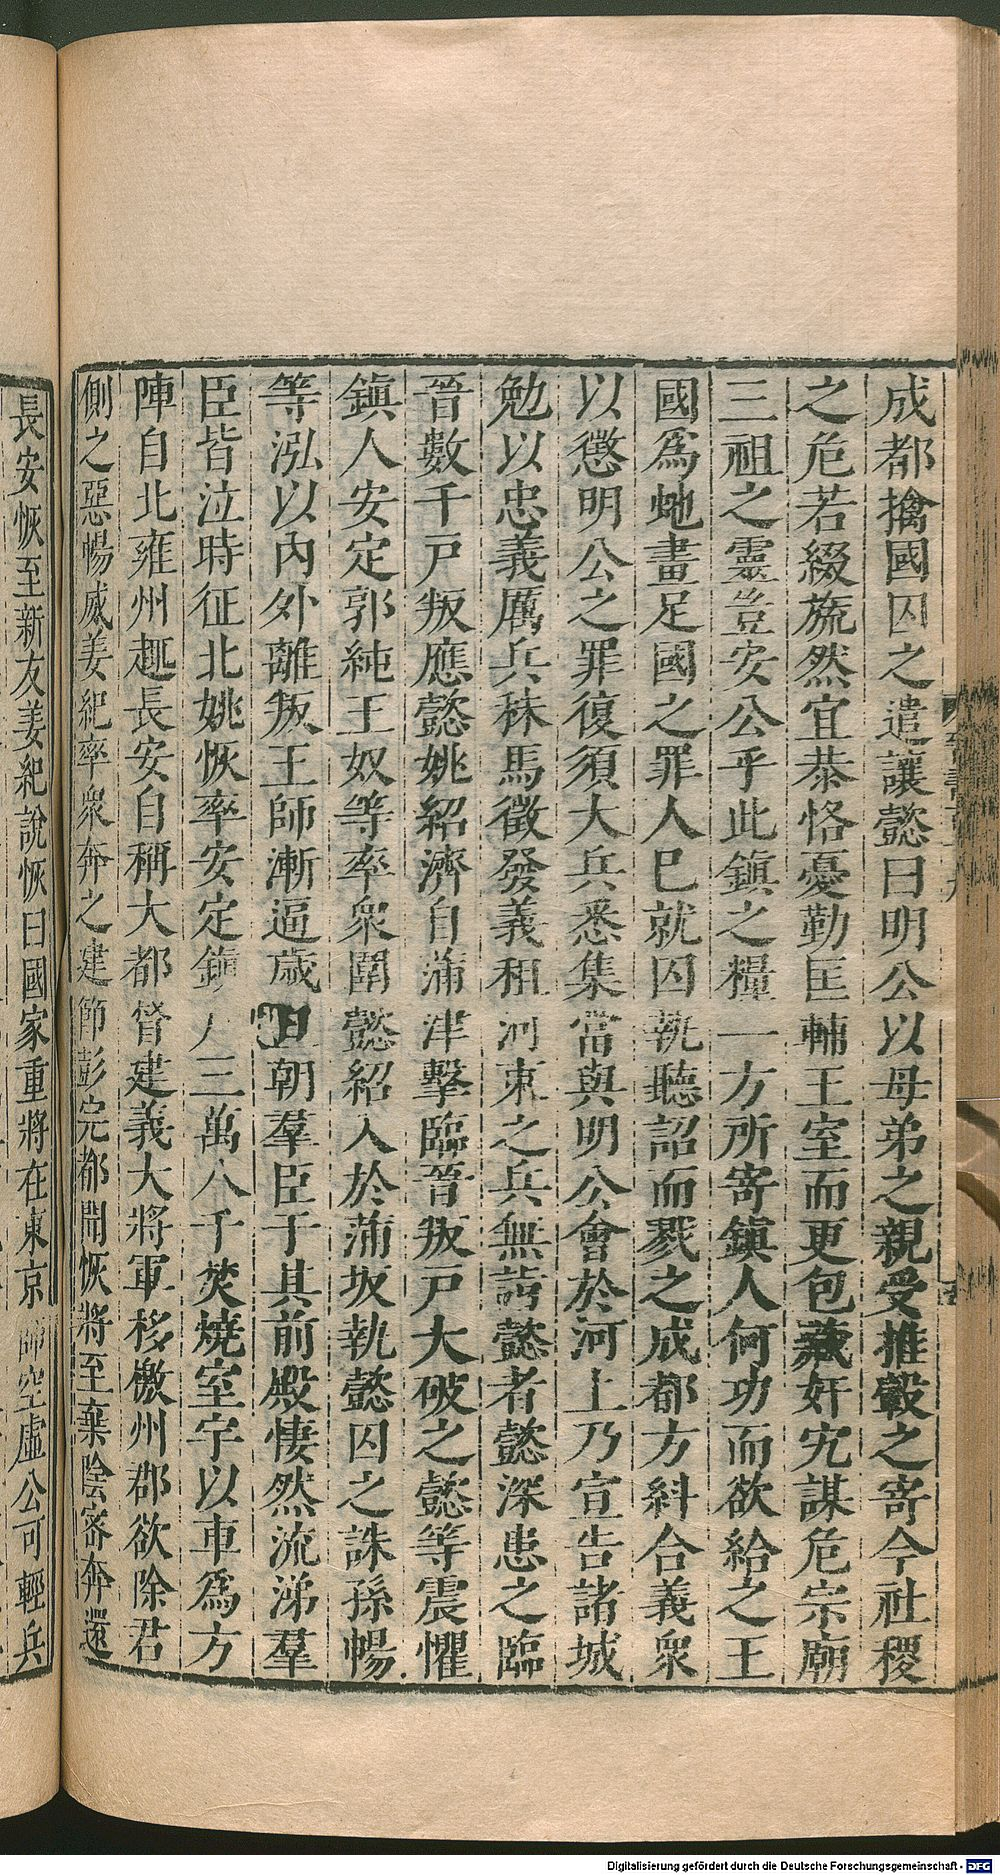 成都擒國囚之遣讓懿曰明公以母弟之親受推轂之寄今社稷
之危若綴旒然宜恭恪憂勤匡輔王室而更包藏奸宄謀危宗廟
三祖之靈豈安公乎此鎮之糧一方所寄鎮人何功而欲給之王
國爲虵畫足國之罪人巳就囚執聽詔而戮之成都方糾合義衆
以懲明公之罪復須大兵悉集當與明公會於河上乃宣告諸城
勉以忠義厲兵秣馬徵發義租河東之兵無詣懿者懿深患之臨
晉數千戸叛應懿姚紹濟自蒲津擊臨晉叛戸大破之懿等震懼
鎮人安定郭純王奴等率衆圍懿紹入於蒲坂執懿囚之誅孫暢
等泓以內外離叛王師漸逼歲旦朝羣臣于其前殿悽然流涕羣
臣皆泣時征北姚恢率安定鎮戸三萬八千焚燒室宇以車爲方
陣自北雍州趣長安自稱大都督建義大將軍移檄州郡欲除君
側之惡暢威姜紀率衆奔之建節彭完都聞恢將至棄陰密奔還
長安恢至新友姜紀說恢曰國家重將在東京師空虛公可輕兵
Digitalisierung gefördert durch die Deutsche Forschungsgemeinschaft - DFG